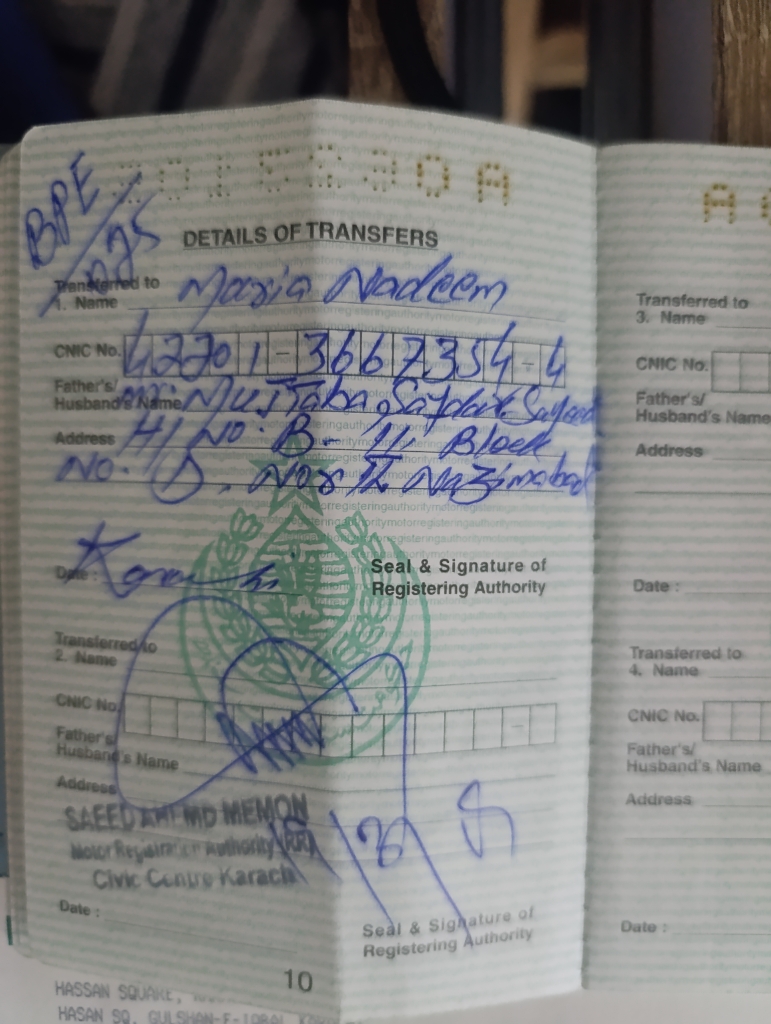 BPE
DETAILS OF TRANSFERS
Transferred to
1. Name Maria Nadeem
CNIC No. 42201-3667354-4
Father's/
Husband's Name Mujtaba
Address H No. B.
Block
No. D. Nazimabad
Karachi
Date :
Seal & Signature of
Registering Authority
Transferred to
2. Name
CNIC No.
Father's/
Husband's Name
Address
SAEED AHEMD MEMON
Motor Registration Authority
Civic Centre Karachi
Date :
Seal & Signature of
Registering Authority
10
Transferred to
3. Name
CNIC No.
Father's/
Husband's Name
Address
Date :
Transferred to
4. Name
CNIC No.
Father's/
Husband's Name
Address
Date :
HASSAN SQUARE,
HASAN SQ. GULSHAN-E-IQBAL